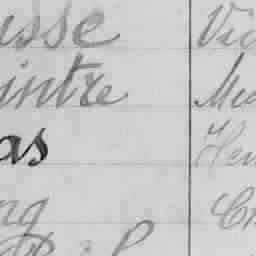 usse Vic
intre Med
as Hen
ng Ch